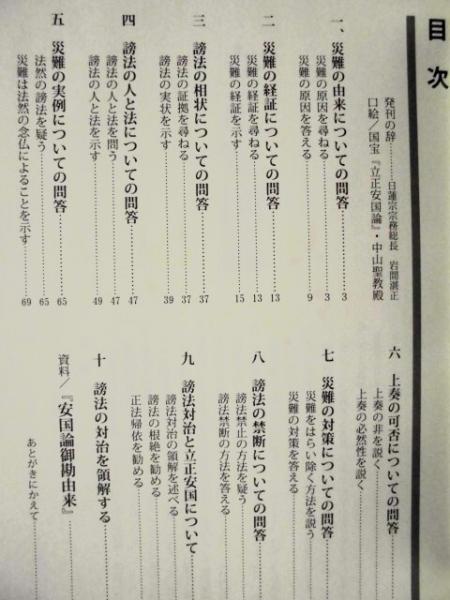 目次
発刊の辞………日蓮宗宗務総長 岩間湛正
口絵/国宝『立正安国論』・中山聖教殿
一、災難の由来についての問答……3
災難の原因を尋ねる……3
災難の原因を答える……9
二 災難の経証についての問答……13
災難の経証を尋ねる……13
災難の経証を示す……15
三 謗法の相状についての問答……37
謗法の証拠を尋ねる……37
謗法の実状を示す……39
四 謗法の人と法についての問答……47
謗法の人と法を問う……47
謗法の人と法を示す……49
五 災難の実例についての問答……65
法然の謗法を疑う……65
災難は法然の念仏によることを示す……69
六 上奏の可否についての問答……
上奏の非を説く……
上奏の必然性を説く……
七 災難の対策についての問答……
災難をはらい除く方法を説う……
災難の対策を答える……
八 謗法の禁断についての問答……
謗法禁止の方法を疑う……
謗法禁断の方法を答える……
九 謗法対治と立正安国について……
謗法対治の領解を述べる……
謗法の根絶を勧める……
正法帰依を勧める……
十 謗法の対治を領解する……
資料/『安国論御勘由来』
あとがきにかえて……